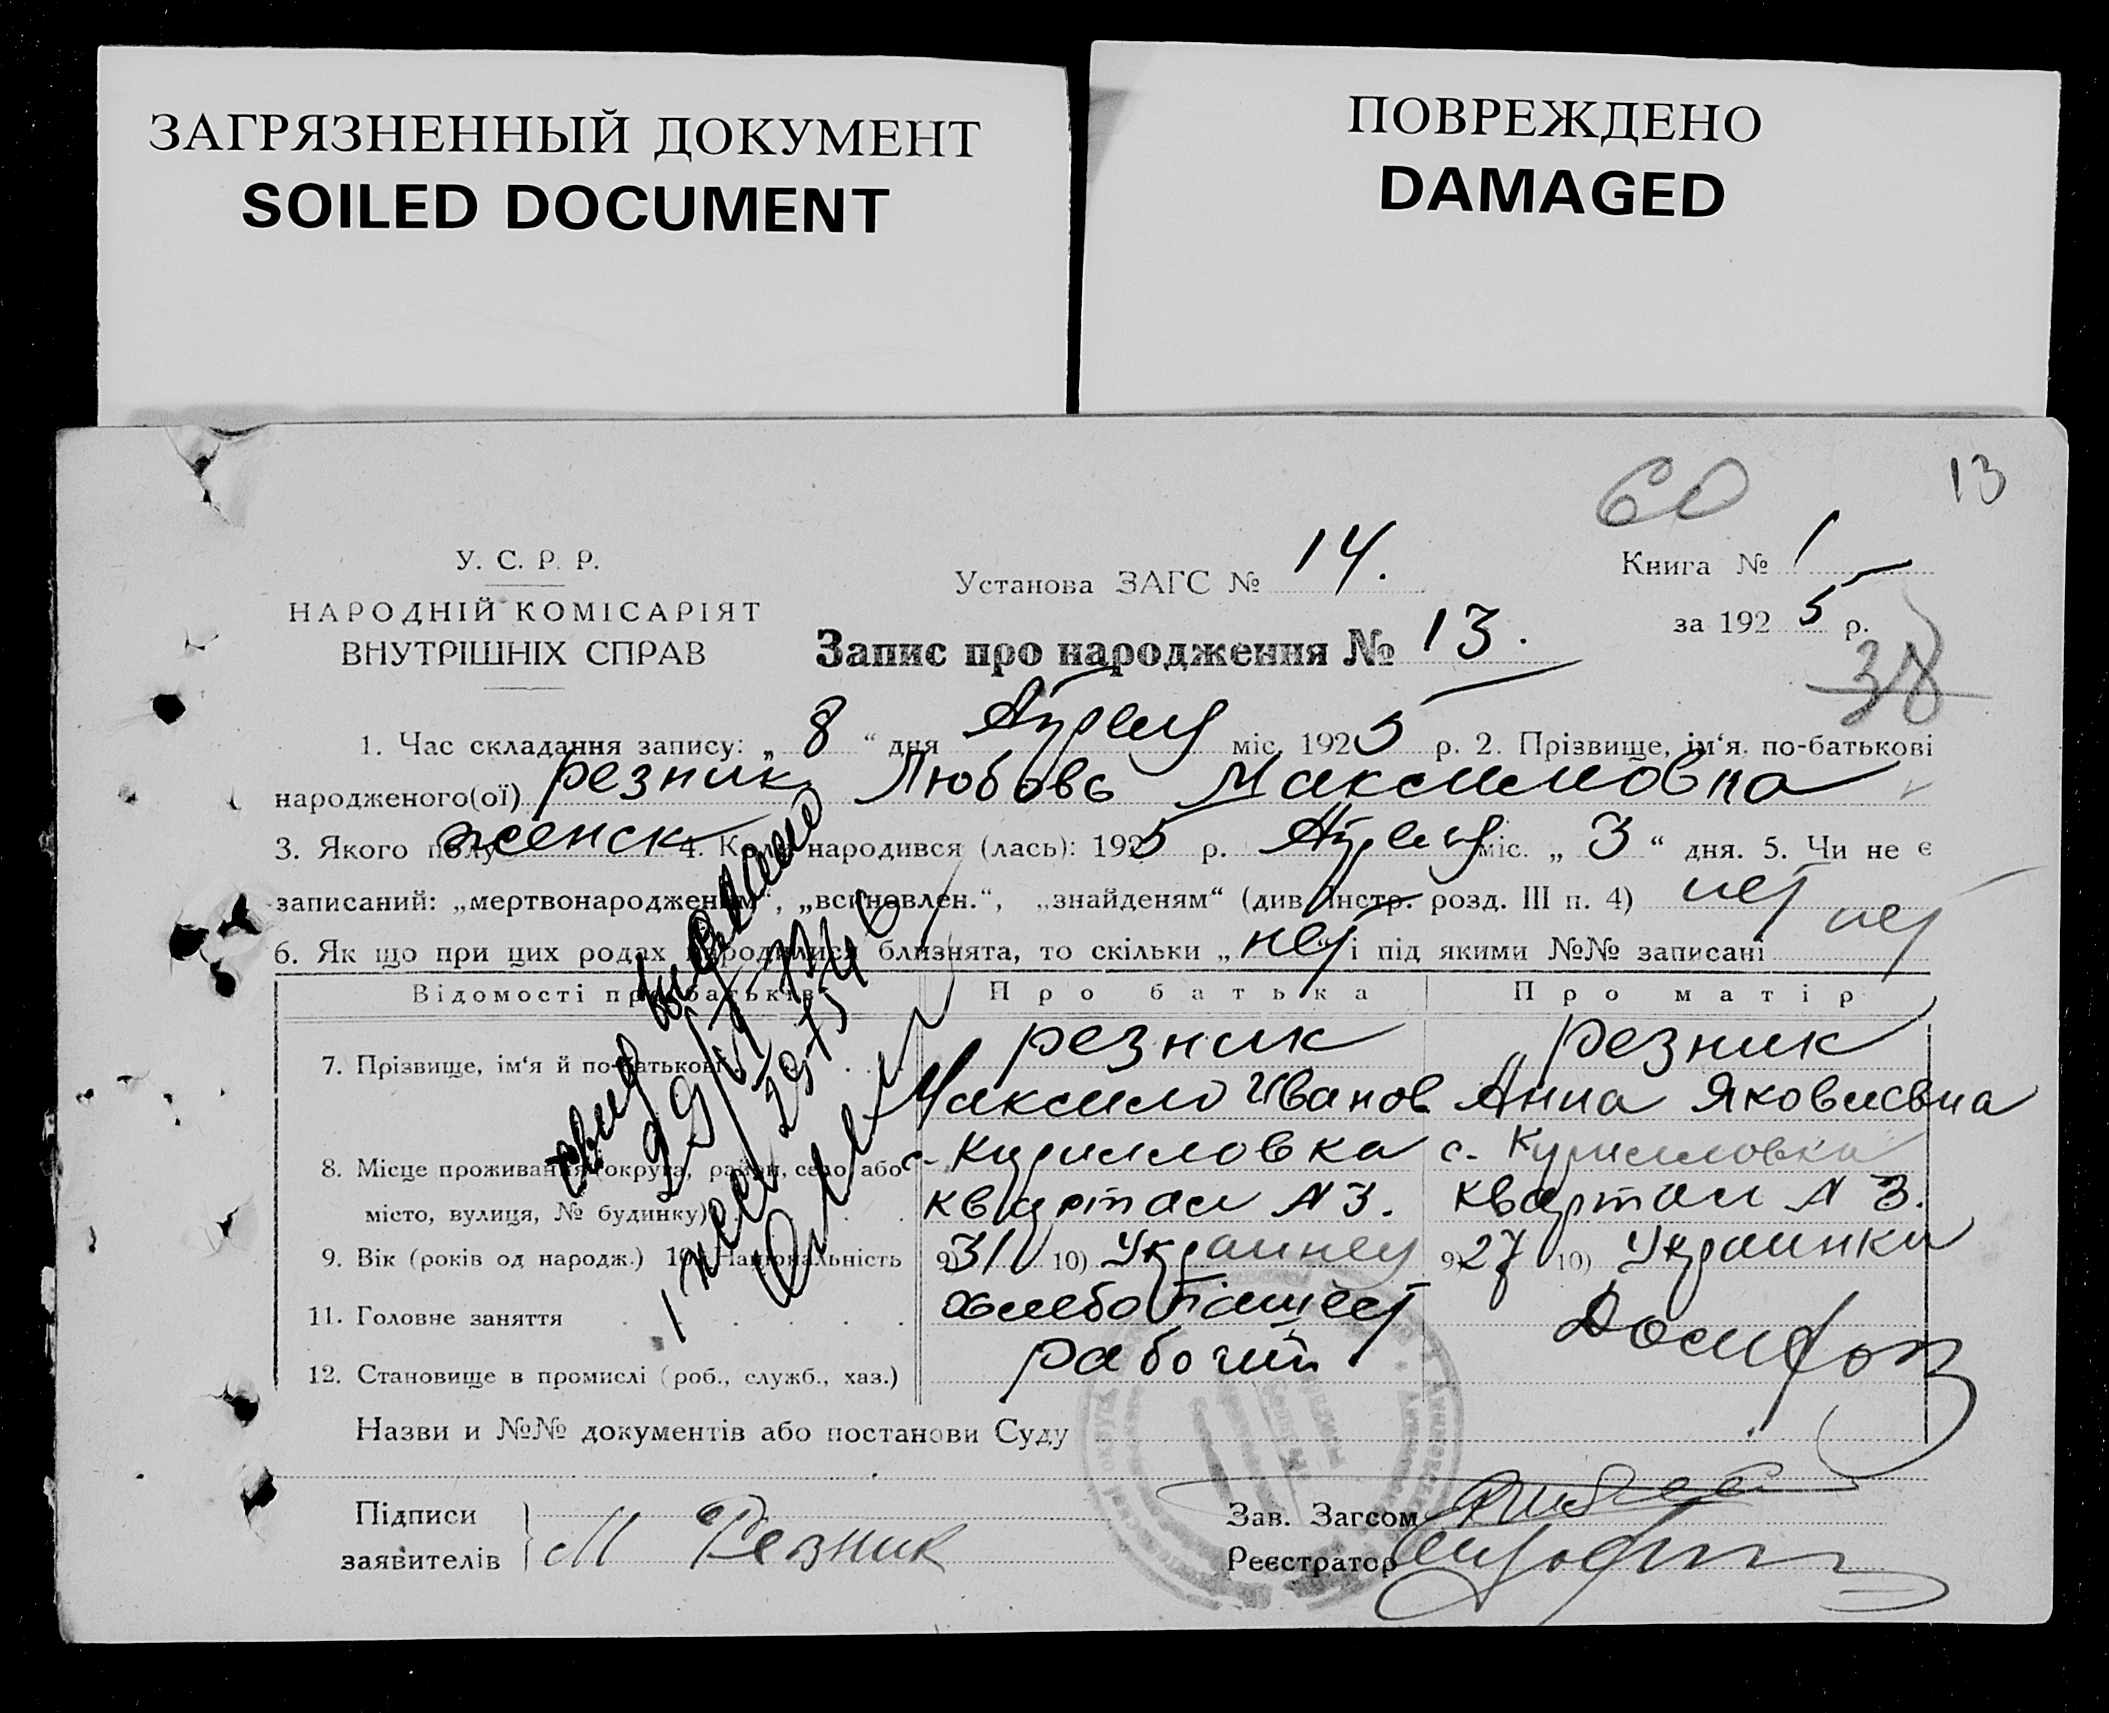 ЗАГРЯЗНЕННЫЙ ДОКУМЕНТ
SOILED DOCUMENT
ПОВРЕЖДЕНО
DAMAGED
60 13
У. С. Р. Р.
НАРОДНІЙ КОМІСАРІЯТ
ВНУТРІШНІХ СПРАВ
Установа ЗАГС № 14.
Запис про народження № 13.
Книга № 1
за 1925 р.
38
1. Час складання запису: „ 8 “ дня Апреля міс. 1925 р. 2. Прізвище, ім‘я, по-батькові
народженого(ої) Резник Любовь Максимовна
3. Якого полу женск 4. Коли народився (лась): 1925 р. Апреля міс. „ 3 “ дня. 5. Чи не є
записаний: „мертвонародженим“, „всиновлен.“, „знайденям“ (див Інстр. розд. III п. 4) нет
6. Як що при цих родах народилися близнята, то скільки „ нет і під якими №№ записані нет
Відомості про батьків Про батька Про матір
7. Прізвище, ім‘я й по-батькові Резник Резник
Максим Иванов Анна Яковлевна
8. Місце проживання (округа, район, село або с. Куриловка с. Куриловка
місто, вулиця, № будинку) квартал N 3. квартал N 3.
9. Вік (років од народж.) 10. Національність 9) 31 10) Украинец 9) 27 10) Украинка
11. Головне заняття хлебопашест Домхоз
12. Становище в промислі (роб., служб., хаз.) рабочий
Назви и №№ документів або постанови Суду
Підписи
заявителів М Резник
Зав. Загсом
Реєстратор